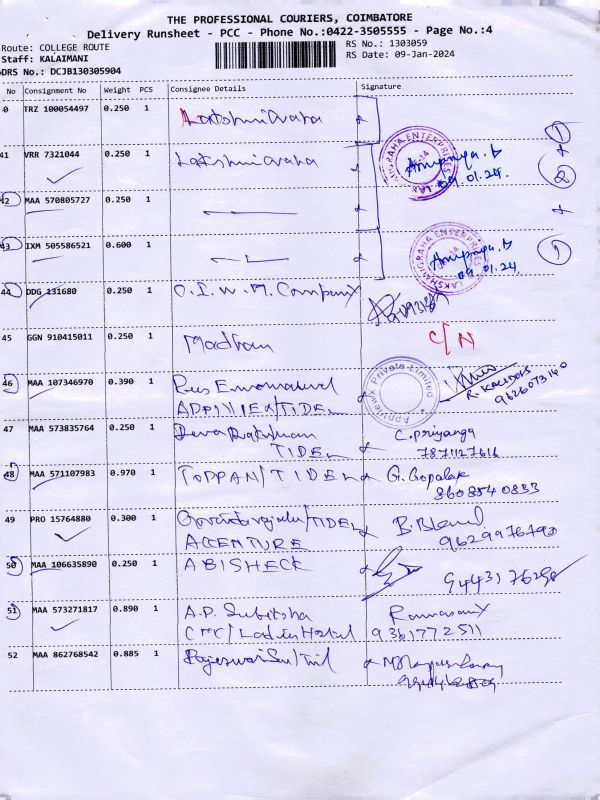 THE PROFESSIONAL COURIERS, COIMBATORE
Delivery Runsheet - PCC - Phone No.:0422-3505555 - Page No.:4
Route: COLLEGE ROUTE RS No.: 1303059
Staff: KALAIMANI RS Date: 09-Jan-2024
DRS No.: DCJB130305904
No Consignment No Weight PCS Consignee Details Signature
0 TRZ 100054497 0.250 1 Lakshmi Graha
41 VRR 7321044 0.250 1 Lakshmi Graha Anupriya.D
09.01.24.
42 MAA 570805727 0.250 1
43 IXM 505586521 0.600 1 Anupriya.D
09.01.24
44 DDG 131680 0.250 1 O.I.W.M. Company
45 GGN 910415011 0.250 1 Madhan C/N
46 MAA 107346970 0.390 1 AppViewX Private Limited
TIDEL R. KALIDOSS
9626073140
47 MAA 573835764 0.250 1 C. Priyanga
TIDEL 7871127616
48 MAA 571107983 0.970 1 TOPPAN/TIDEL G. Gopalak
8608540833
49 PRO 15764880 0.300 1 /TIDEL
ACCENTURE
50 MAA 106635890 0.250 1 ABISHECK
51 MAA 573271817 0.890 1 A.P. Subiksha
CMC/Ladies Hostel 9361772511
52 MAA 862768542 0.885 1